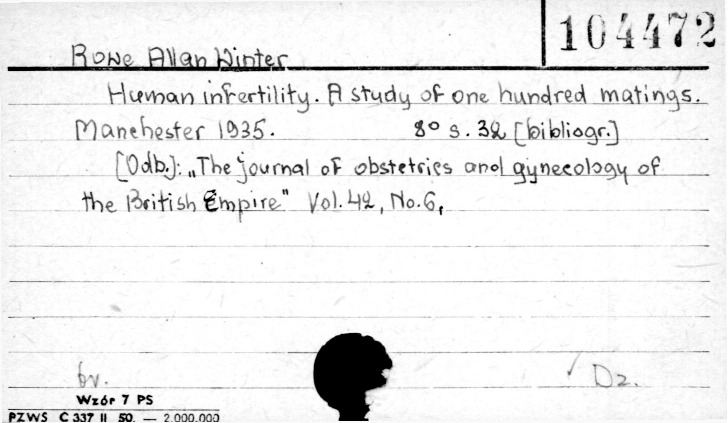 104472
Rowe Allan Winter
Human infertility. A study of one hundred matings.
Manchester 1935. 8° s. 32 [bibliogr.]
[Odb.]: „The journal of obstetrics and gynecology of
the British Empire" Vol. 42, No. 6,
br. Dz.
Wzór 7 PS
PZWS C 337 II 50. — 2.000.000